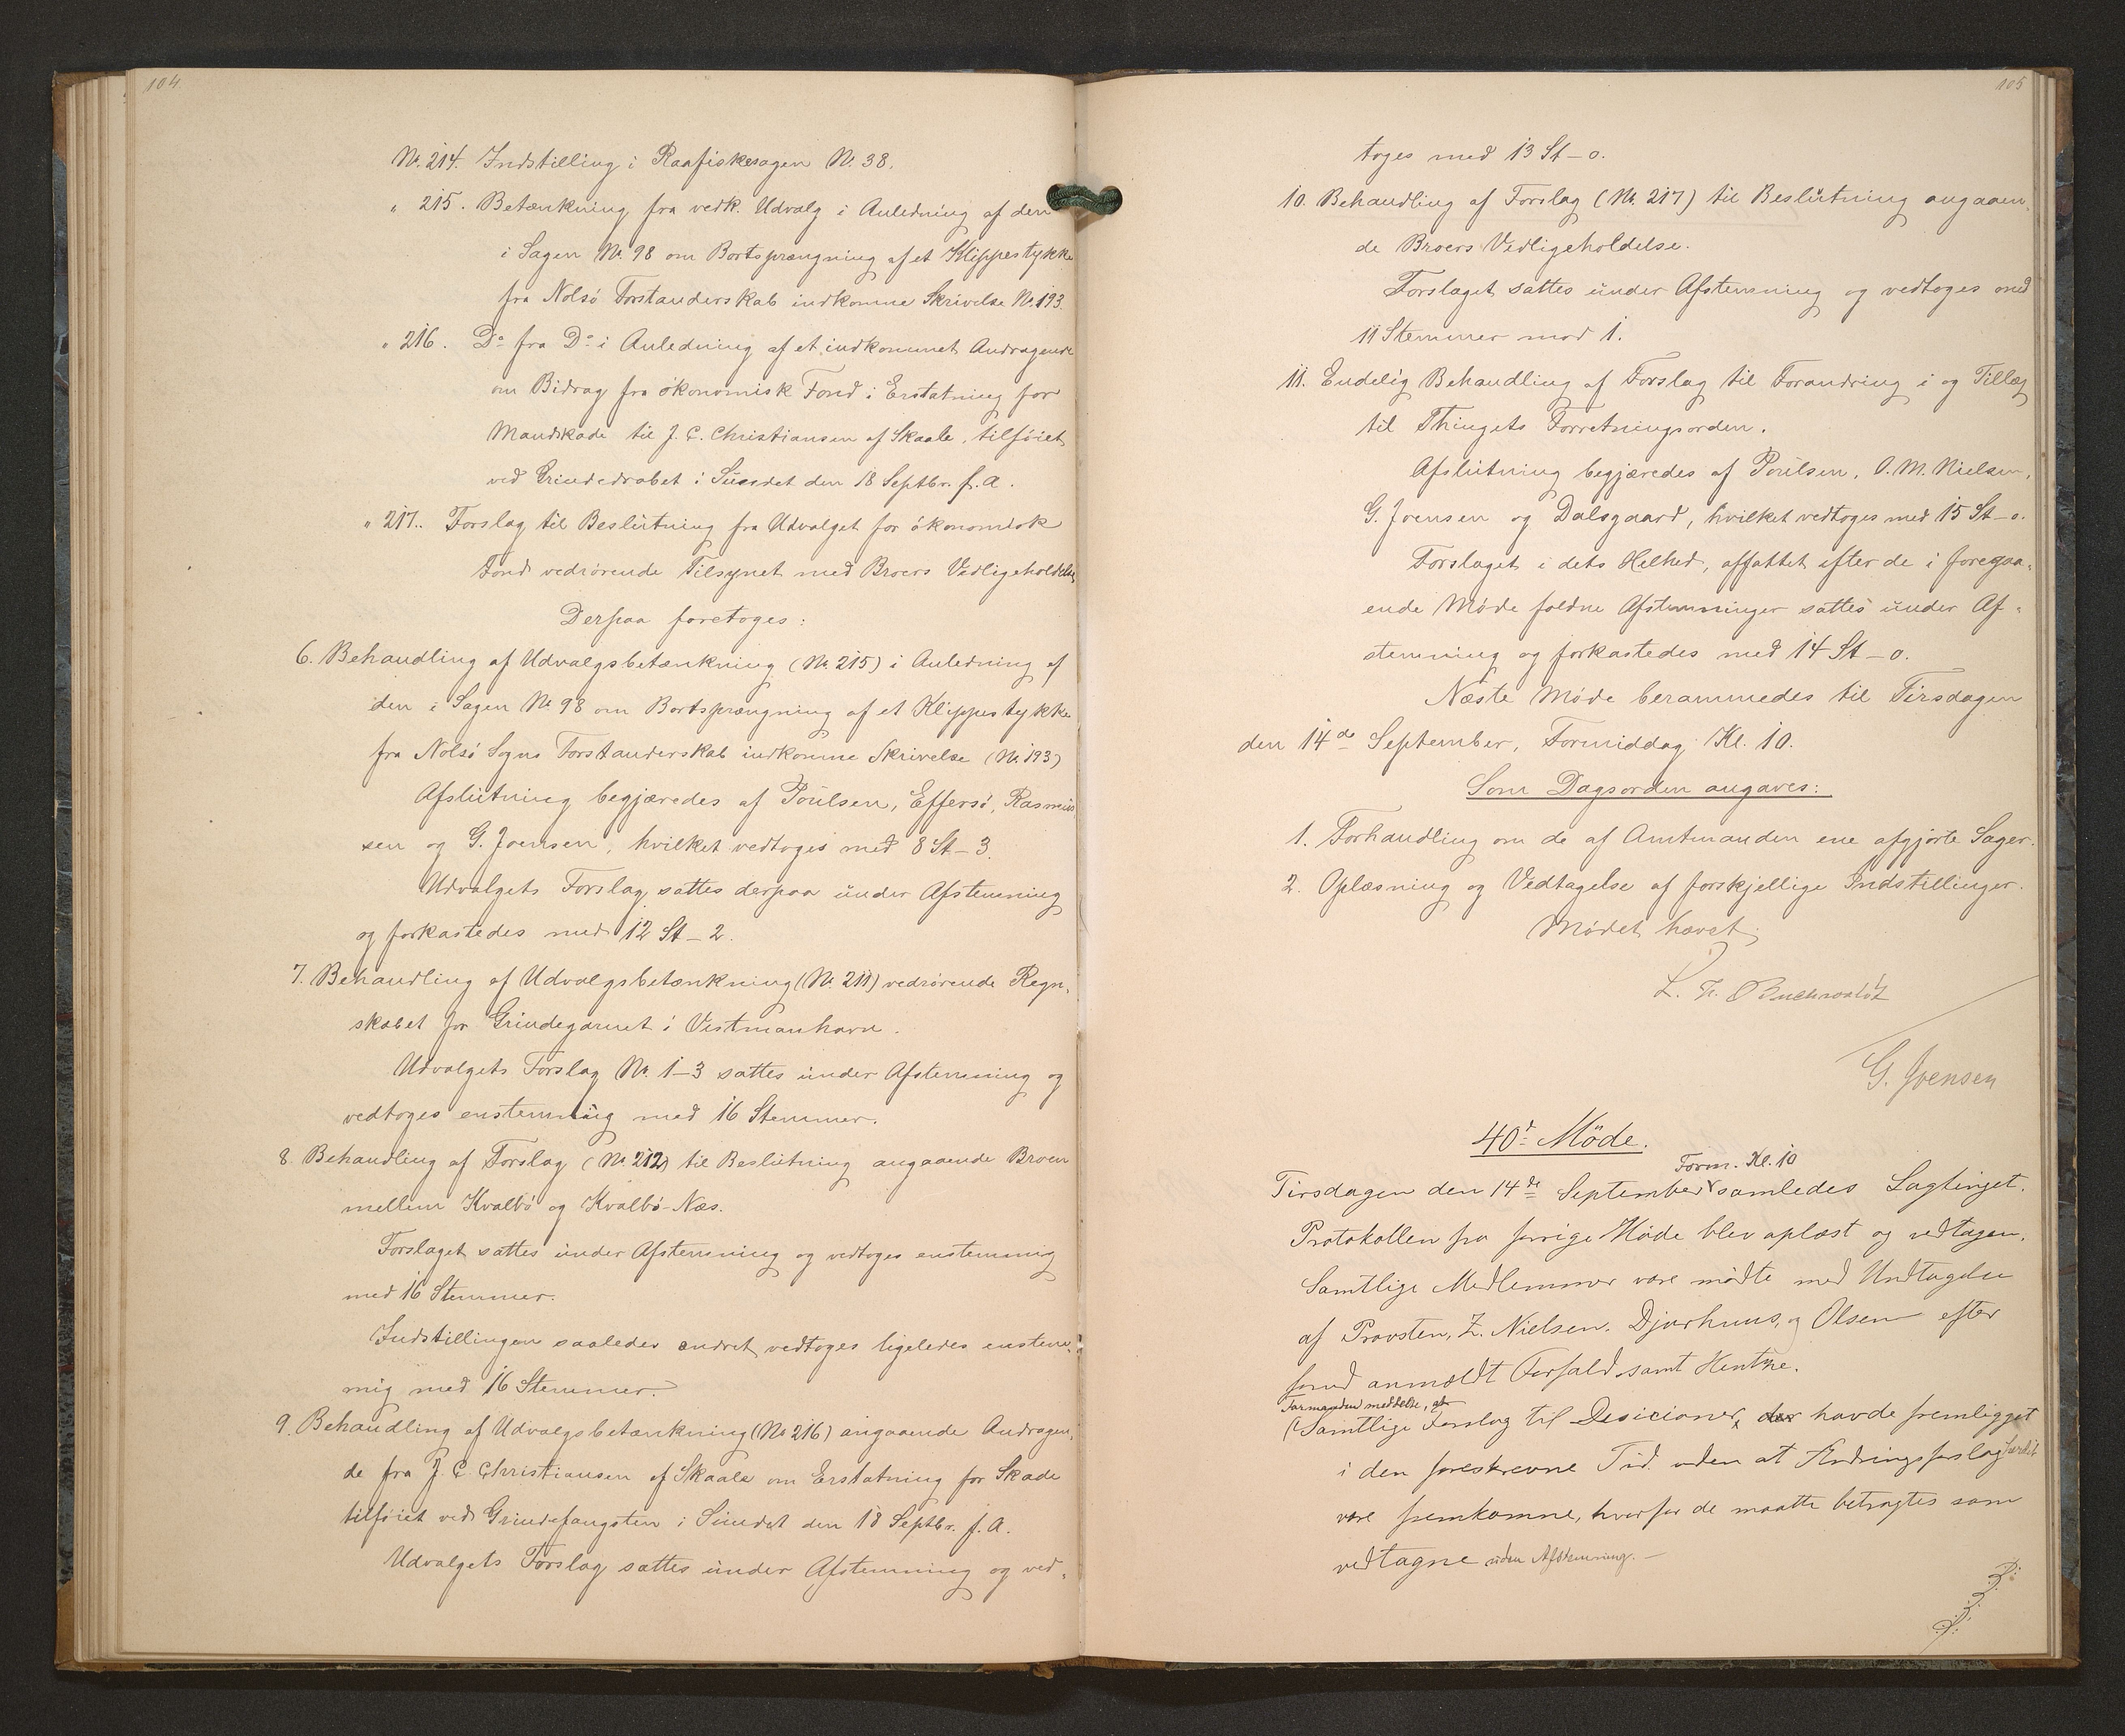 104
No. 214. Indstilling i Raafiskesagen No. 38.
" 215. Betænkning fra vedk. Udvalg i Anledning af den
i Sagen No. 98 om Bortsprængning af et Klippestykke
fra Nolsö Forstanderskab indkomne Skrivelse No. 193.
" 216. Do fra Do i Anledning af et indkommet Andragende
om Bidrag fra ökonomisk Fond i Erstatning for
Mandskade til J. C. Christiansen af Skaale, tilföiet
ved Grindedrabet i Sundet den 18 Septbr. f. A.
" 217. Forslag til Beslutning fra Udvalget for ökonomisk
Fond vedrörende Tilsynet med Broers Vedligeholdelse
Derpaa foretoges:
6. Behandling af Udvalgsbetænkning (No. 215) i Anledning af
den i Sagen No. 98 om Bortsprængning af et Klippestykke
fra Nolsö Sogns Forstanderskab indkomne Skrivelse (No. 193)
Afslutning begjæredes af Poulsen, Effersö, Rasmus
sen og G. Joensen, hvilket vedtoges med 8 St - 3.
Udvalgets Forslag sattes derpaa under Afstemning
og forkastedes med 12 St - 2.
7. Behandling af Udvalgsbetænkning (No. 211) vedrörende Regn-
skabet for Grindegarnet i Vestmanhavn.
Udvalgets Forslag No. 1-3 sattes under Afstemning og
vedtoges enstemmig med 16 Stemmer.
8. Behandling af Forslag (No. 212) til Beslutning angaaende Broen
mellem Kvalbö og Kvalbö-Næs.
Forslaget sattes under Afstemning og vedtoges enstemmig
med 16 Stemmer.
Indstillingen saaledes ændret vedtoges ligeledes enstem-
mig med 16 Stemmer.
9. Behandling af Udvalgsbetænkning (No 216) angaaende Andragen-
de fra J. C. Christiansen af Skaale om Erstatning for Skade
tilföiet ved Grindefangsten i Sundet den 18 Septbr. f. A.
Udvalgets Forslag sattes under Afstemning og ved-
105
toges med 13 St - 0.
10. Behandling af Forslag (No. 217) til Beslutning angaaen-
de Broers Vedligeholdelse.
Forslaget sattes under Afstemning og vedtoges med
11 Stemmer mod 1.
11. Endelig Behandling af Forslag til Forandring i og Tillæg
til Thingets Forretningsorden.
Afslutning begjæredes af Poulsen, O. M. Nielsen,
G. Joensen og Dalsgaard, hvilket vedtoges med 15 St - 0.
Forslaget i dets Helhed, affattet efter de i foregaa-
ende Möde faldne Afstemninger sattes under Af-
stemning og forkastedes med 14 St - 0.
Næste Möde berammedes til Tirsdagen
den 14de September, Formiddag Kl. 10.
Som Dagsorden angaves:
1. Forhandling om de af Amtmanden ene afgjorte Sager.
2. Oplæsning og Vedtagelse af forskjellige Indstillinger.
Mödet hævet.
Buchwaldt
G. Joensen
40de Möde.
Form. Kl. 10
Tirsdagen den 14de September samledes Lagtinget.
Protokollen fra forrige Möde blev oplæst og vedtagen.
Samtlige Medlemmer vare mödte med Undtagelse
af Provsten, Z. Nielsen, Djurhuus, og Olsen efter
forud anmeldt Forfald samt Hentze.
Formanden meddelte, at
(Samtlige Forslag til Desicioner, der havde fremligget
i den foreskrevne Tid uden at Ændringsforslag hertil
vare fremkomne, hvorfor de maatte betragtes som
vedtagne uden Afstemning. -